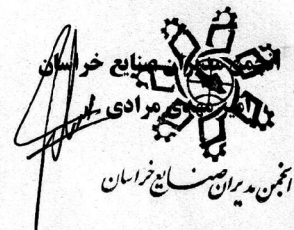 انجمن مدیران صنایع خراسان
امیر مهدی مرادی
انجمن مدیران صنایع خراسان